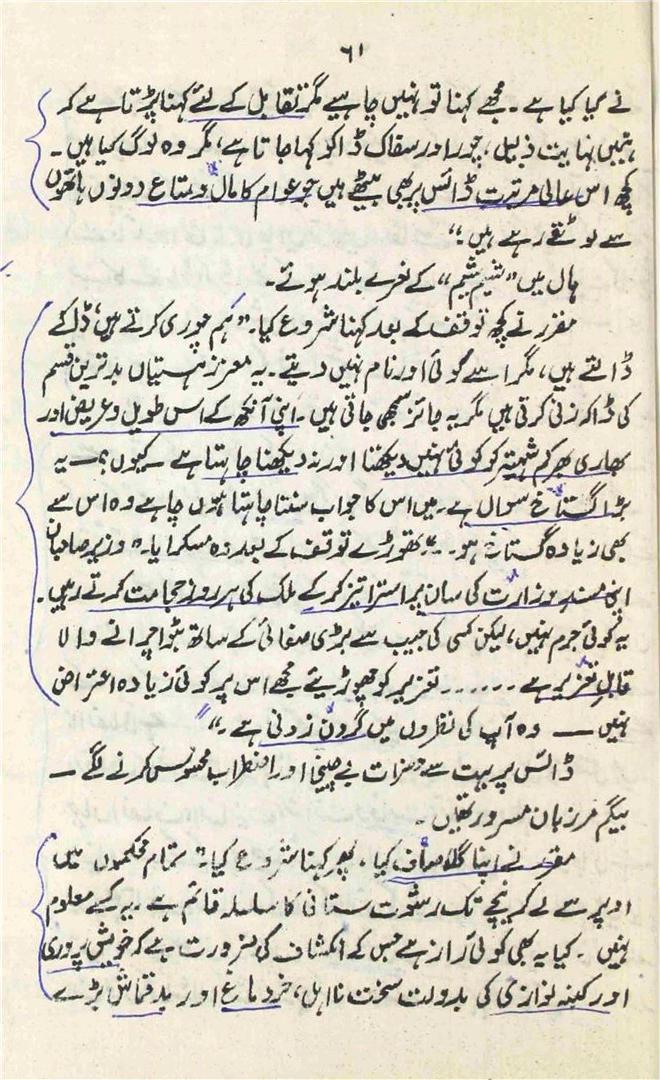 ۶۱
نے کیا کیا ہے۔ مجھے کہنا تو نہیں چاہیے مگر تقابل کے لئے کہنا پڑتا ہے کہ
ہمیں نہایت ذلیل، چور اور سفاک ڈاکو کہا جاتا ہے، مگر وہ لوگ کیا ہیں۔
کچھ اس عالی مرتبت ڈائس پر بھی بیٹھے ہیں جو عوام کا مال و متاع دونوں ہاتھوں
سے لوٹتے رہے ہیں۔“
ہال میں ”شیم شیم“ کے نعرے بلند ہوئے۔
مقرر نے کچھ توقف کے بعد کہنا شروع کیا۔ ”ہم چوری کرتے ہیں، ڈاکے
ڈالتے ہیں، مگر اسے کوئی اور نام نہیں دیتے۔ یہ معزز ہستیاں بدترین قسم
کی ڈاکہ زنی کرتی ہیں مگر یہ جائز سمجھی جاتی ہیں۔ اپنی آنکھ کے اس طویل و عریض اور
بھاری بھرکم شہتیر کو کوئی نہیں دیکھتا اور نہ دیکھنا چاہتا ہے۔ کیوں؟ — یہ
بڑا گستاخ سوال ہے۔ میں اس کا جواب سننا چاہتا ہوں چاہے وہ اس سے
بھی زیادہ گستاخ ہو۔“ تھوڑے توقف کے بعد وہ مسکرایا۔ ”وزیر صاحبان
اپنی مسندِ وزارت کی سان پر استرا تیز کر کے ملک کی ہر روز حجامت کرتے رہیں۔
یہ کوئی جرم نہیں، لیکن کسی کی جیب سے بڑی صفائی کے ساتھ بٹوا چرانے والا
قابلِ تعزیر ہے ...... تعزیر کو چھوڑیئے مجھے اس پر کوئی زیادہ اعتراض
نہیں — وہ آپ کی نظروں میں گردن زدنی ہے۔“
ڈائس پر بہت سے حضرات بے چینی اور اضطراب محسوس کرنے لگے —
بیگم مرزبان مسرور تھیں۔
مقرر نے اپنا گلا صاف کیا، پھر کہنا شروع کیا۔ ”تمام محکموں میں
اوپر سے لے کر نیچے تک رشوت ستانی کا سلسلہ قائم ہے۔ یہ کسے معلوم
نہیں۔ کیا یہ بھی کوئی راز ہے جس کے انکشاف کی ضرورت ہے کہ خویش پروری
اور کنبہ نوازی کی بدولت سخت نااہل، خر دماغ اور بدقماش بڑے